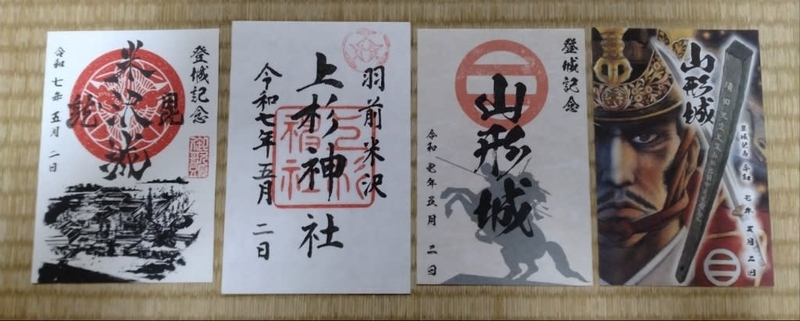 登城記念
毘
米沢城
龍
令和七年五月二日
羽前米沢
上杉神社
令和七年五月二日
登城記念
山形城
令和七年五月二日
山形城
登城記念 令和七年五月二日